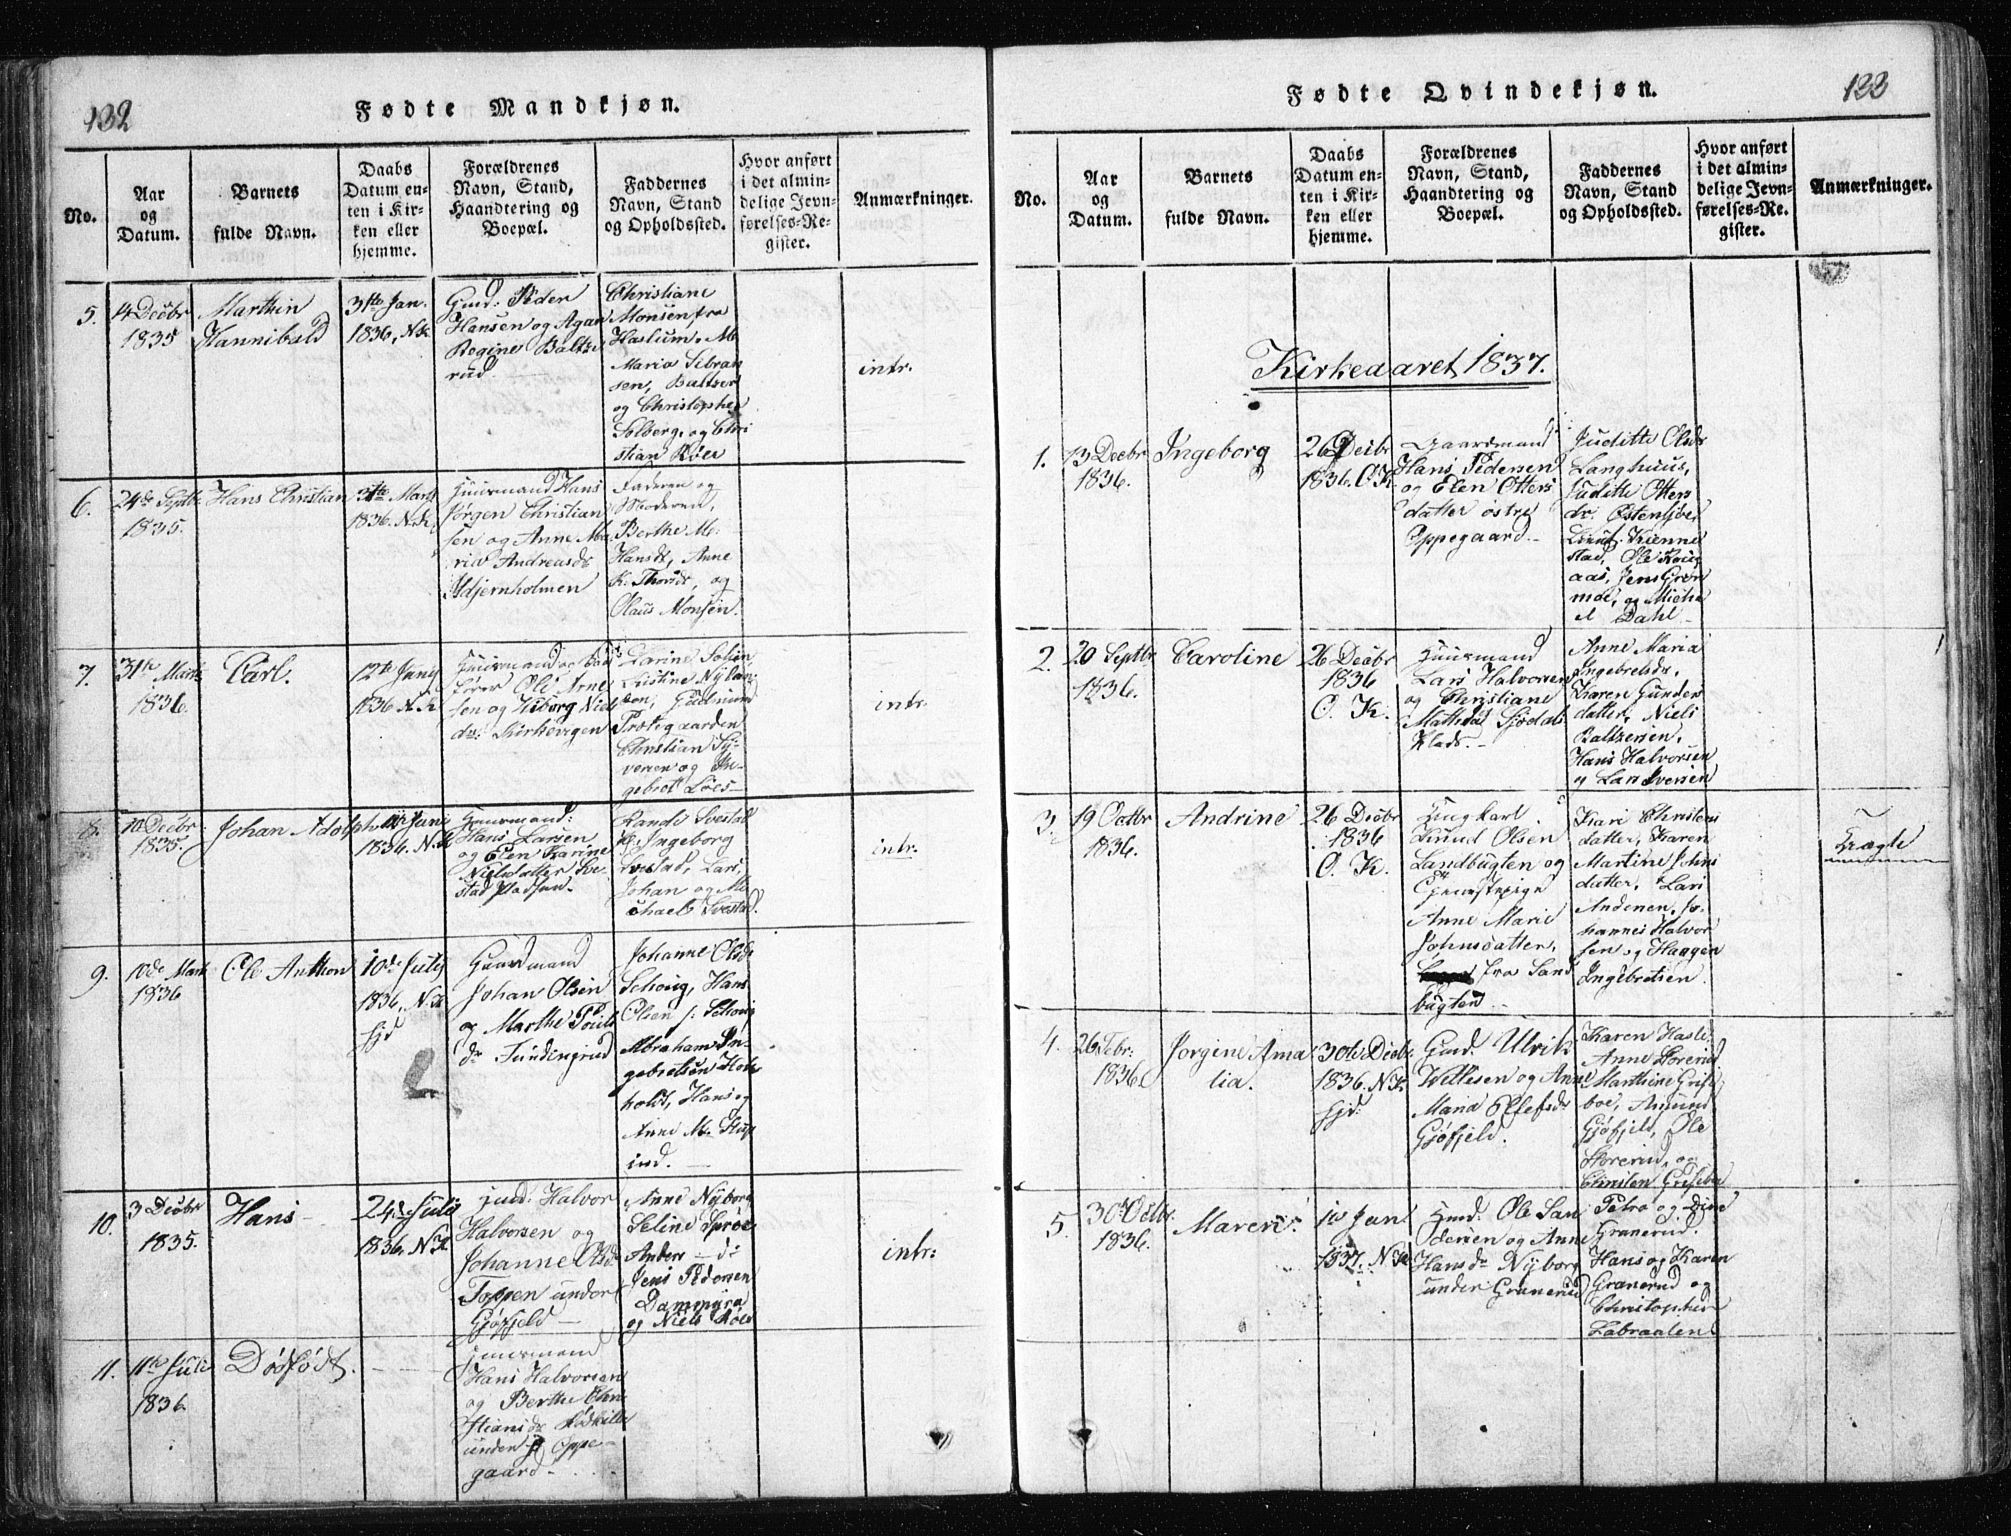 132
Fødte Mandkjøn.
No.
Aar
og
Datum.
Barnets
fulde Navn.
Daabs
Datum en-
ten i Kir-
ken eller
hjemme.
Forældrenes
Navn, Stand,
Haandtering og
Boepæl.
Faddernes
Navn, Stand
og Opholdssted.
Hvor anført
i det almin-
delige Jevn-
førelses-Re-
gister.
Anmærkninger.
5.
14 Decbr
1835
Marthin
Hannibald
31te Jan.
1836, N.K
Gmd: Peder
Hansen og Agan
Regine Baltze
rud
Christiane
Monsen fra
Haslum, M
Maria Sebran
sen, Baltser
og Christopher
Solberg, og Chri
stian Röer
intr.
6.
24de Septb.
1835.
Hans Christian
31te Marts
1836. N.K.
Huusmand Hans
Jörgen Christian
sen og Anne Ma
ria Andreasdr
Ildjernholmen
Faderen og
Moderen,
Berthe M:
Hansdr, Anne
K. Thorsdr, og
Olaus Monsen.
7.
31te Marts
1836
Carl.
12te Juny
1836 N.K
Huusmand og
Ole Arne
sen og Kiborg Niels
dr. Kirkevigen
Larine Solien
Nylan-
den, Gudmund
Prestegaarden
Christian Sy-
versen og In-
gebret Löes
intr.
8.
10 Decbr.
1835.
Johan Adolph
Juni
1836. N.K
Huusmand:
Hans Larsen
og Elen Karine
Nielsdatter Sve-
stad Pladsen.
Randi Svestad
Ingeborg
Svestad, Lars,
Johan og Mi-
chael Svestad.
intr.
9.
10de Mart
1836
Ole Anthon
10de July
1836. N.K
hjd
Huusmand
Johan Olsen
og Marthe Pouls
dr Tundengrud
Johanne Olsdr
Schoug, Hans
Olsen Schoug
Abraham In-
gebretsen Hok
holdt, Hans og
Anne M. Stup
ind.
10.
3 Decbr
1835.
Hans
24d Juli
1836. N.K
Halvor
Halvorsen og
Johanne Olsdr
Toppen under
Gjöfjeld
Anne Nyborg
Seline Spröe
Anders — do
Jens Pedersen
Dammyra
og Niels Röer
intr:
11.
11te Juli
1836
Dödfödt.
Huusmand
Hans Halvorsen
og Berthe Chri
stiansdr Rödkille
under Oppe-
gaard.
133
Fødte Qvindekjøn.
No.
Aar
og
Datum.
Barnets
fulde Navn.
Daabs
Datum en-
ten i Kir-
ken eller
hjemme.
Forældrenes
Navn, Stand,
Haandtering og
Boepæl.
Faddernes
Navn, Stand
og Opholdssted.
Hvor anført
i det almin-
delige Jevn-
førelses-Re-
gister.
Anmærkninger.
Kirkeaaret 1837.
1.
13 Decbr
1836.
Ingeborg
26 Decbr
1836. O.K.
Gaardmand
Hans Pedersen
og Elen Otters
datter östre
Oppegaard.
Juditte Olsdr
Langhuus,
Juditte Otters
dr. Östensjöe,
Knud Trienne
stad, Ole Kaig
aas, Jens Grön
moe, og Micha
el Dahl
2.
20 Septbr
1836.
Caroline
26 Decbr
1836
O. K.
Huusmand
Lars Halvorsen
og Christiane
Mathea Sjödals
Klads.
Anne Maria
Ingebretsdr,
Karen Gunders
datter, Niels
Baltzersen,
Hans Halvorsen
og Lars Iversen
3.
19 Octbr
1836.
Andrine
26 Decbr
1836
O. K.
Ungkarl
Knud Olsen
Landbugten og
Tjenestepige
Anne Marie
Johnsdatter,
fra Sand
bugten
Kari Christens
datter, Karen
Martine Johns
datter, Lars
Andersen, Jo-
hannes Halvor
sen og Haagen
Ingebretsen.
Uægte
4.
26 Febr:
1836.
Jorgine Ama
lia.
30te Decbr.
1836. N.K.
hjd:
Gmd. Ulrik
Willesen og Anne
Maria Ollefsdr
Gjöfjeld.
Karen Hasle
Anne Storerud
Marthine Grise
boe, Amund
Gjöfjeld, Ole
Storerud, og
Christen Griseboe
5.
30te Octbr.
1836.
Maren.
1ste Jan.
1837. N.K
Hmd. Ole San
dersen og Anne
Hansdr Nyborg
under Granerud
Petra og Dine
Granerud.
Hans og Karen
Granerud og
Christopher
Labraaten